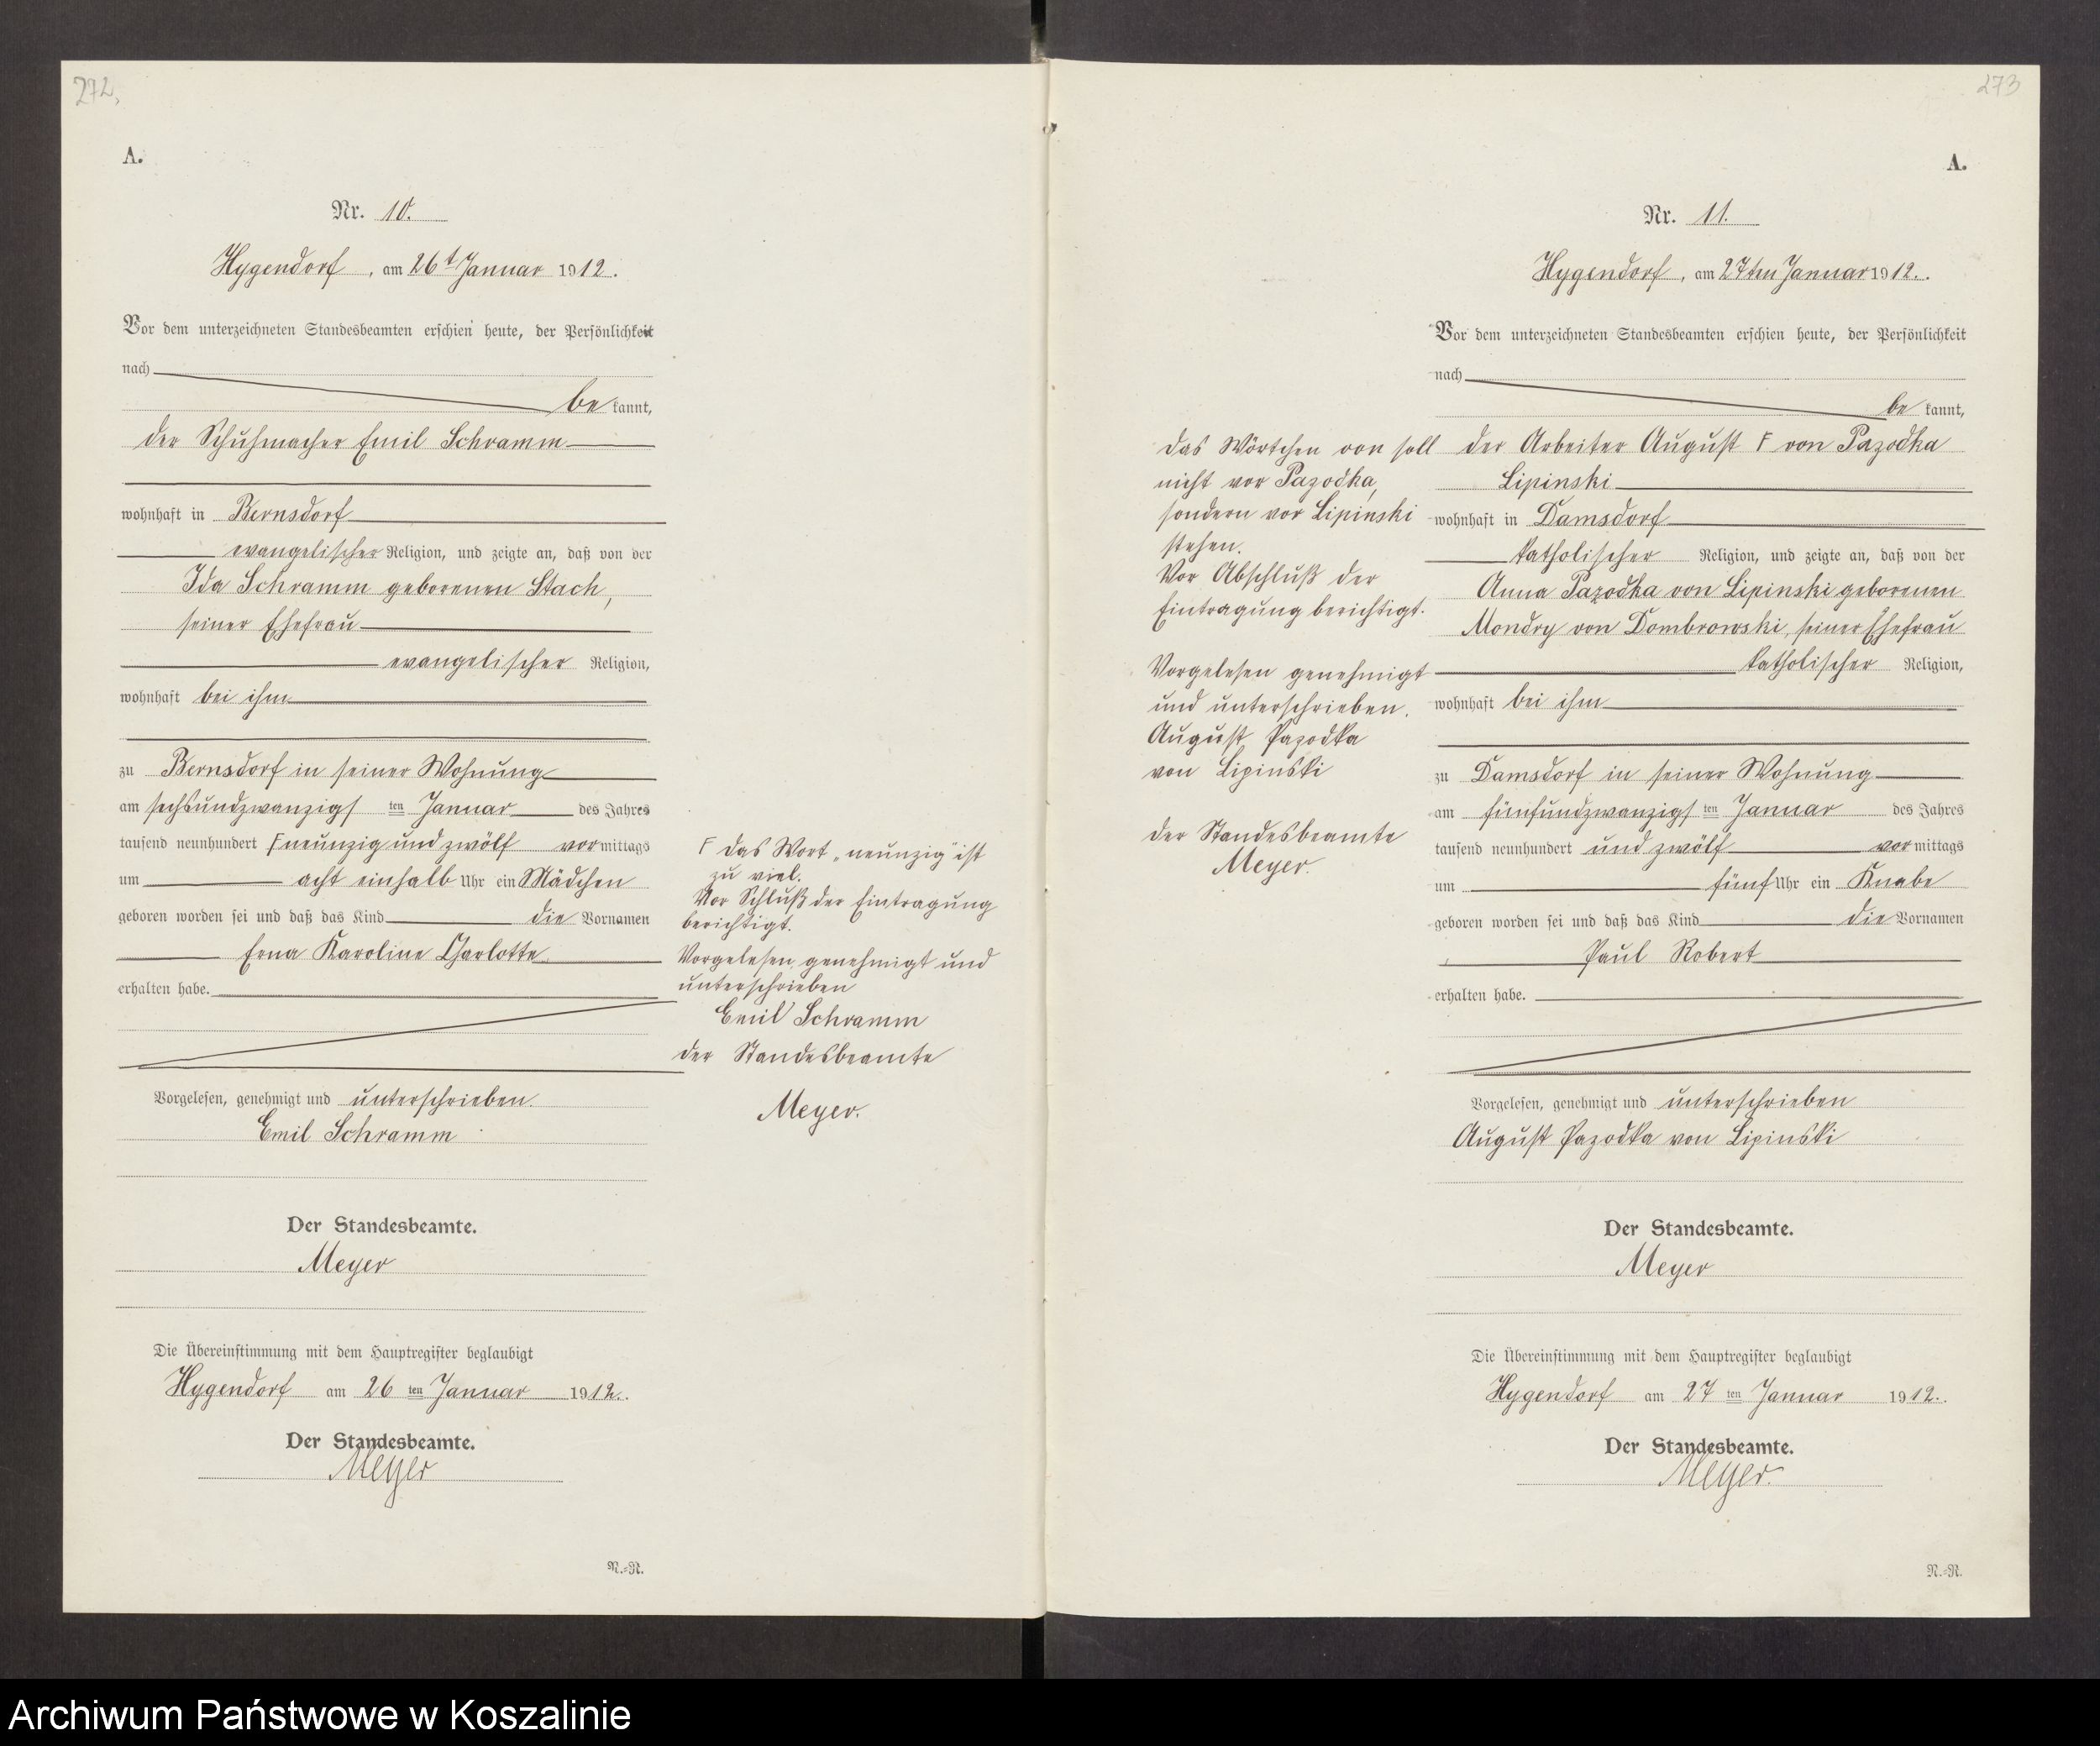 272,
A.
Nr. 10.
Hygendorf, am 26t Januar 1912.
Vor dem unterzeichneten Standesbeamten erschien heute, der Persönlichkeit
nach
be kannt,
der Schuhmacher Emil Schramm
wohnhaft in Bernsdorf
evangelischer Religion, und zeigte an, daß von der
Ida Schramm geborenen Stach,
seiner Ehefrau
evangelischer Religion,
wohnhaft bei ihm
zu Bernsdorf in seiner Wohnung
am sechsundzwanzigs ten Januar des Jahres
tausend neunhundert F neunzig und zwölf vormittags
um acht einhalb Uhr ein Mädchen
geboren worden sei und daß das Kind die Vornamen
Erna Karoline Charlotte
erhalten habe.
F Das Wort „neunzig" ist
zu viel.
Vor Schluß der Eintragung
berichtigt.
Vorgelesen genehmigt und
unterschrieben
Emil Schramm
der Standesbeamte
Meyer.
Vorgelesen, genehmigt und unterschrieben.
Emil Schramm
Der Standesbeamte.
Meyer
Die Übereinstimmung mit dem Hauptregister beglaubigt
Hygendorf am 26 ten Januar 1912.
Der Standesbeamte.
Meyer
N.-N.
273
A.
Nr. 11.
Hygendorf, am 27ten Januar 1912.
Vor dem unterzeichneten Standesbeamten erschien heute, der Persönlichkeit
nach
be kannt,
der Arbeiter August F von Pazodka
Lipinski
wohnhaft in Damsdorf
katholischer Religion, und zeigte an, daß von der
Anna Pazodka von Lipinski geborenen
Mondry von Dombrowski, seiner Ehefrau
katholischer Religion,
wohnhaft bei ihm
zu Damsdorf in seiner Wohnung
am fünfundzwanzigs ten Januar des Jahres
tausend neunhundert und zwölf vormittags
um fünf Uhr ein Knabe
geboren worden sei und daß das Kind die Vornamen
Paul Robert
erhalten habe.
Das Wörtchen von soll
nicht vor Pazodka,
sondern vor Lipinski
stehen.
Vor Abschluß der
Eintragung berichtigt.
Vorgelesen genehmigt
und unterschrieben.
August Pazodka
von Lipinski
der Standesbeamte
Meyer.
Vorgelesen, genehmigt und unterschrieben
August Pazodka von Lipinski
Der Standesbeamte.
Meyer
Die Übereinstimmung mit dem Hauptregister beglaubigt
Hygendorf am 27 ten Januar 1912.
Der Standesbeamte.
Meyer.
N.-N.
Archiwum Państwowe w Koszalinie